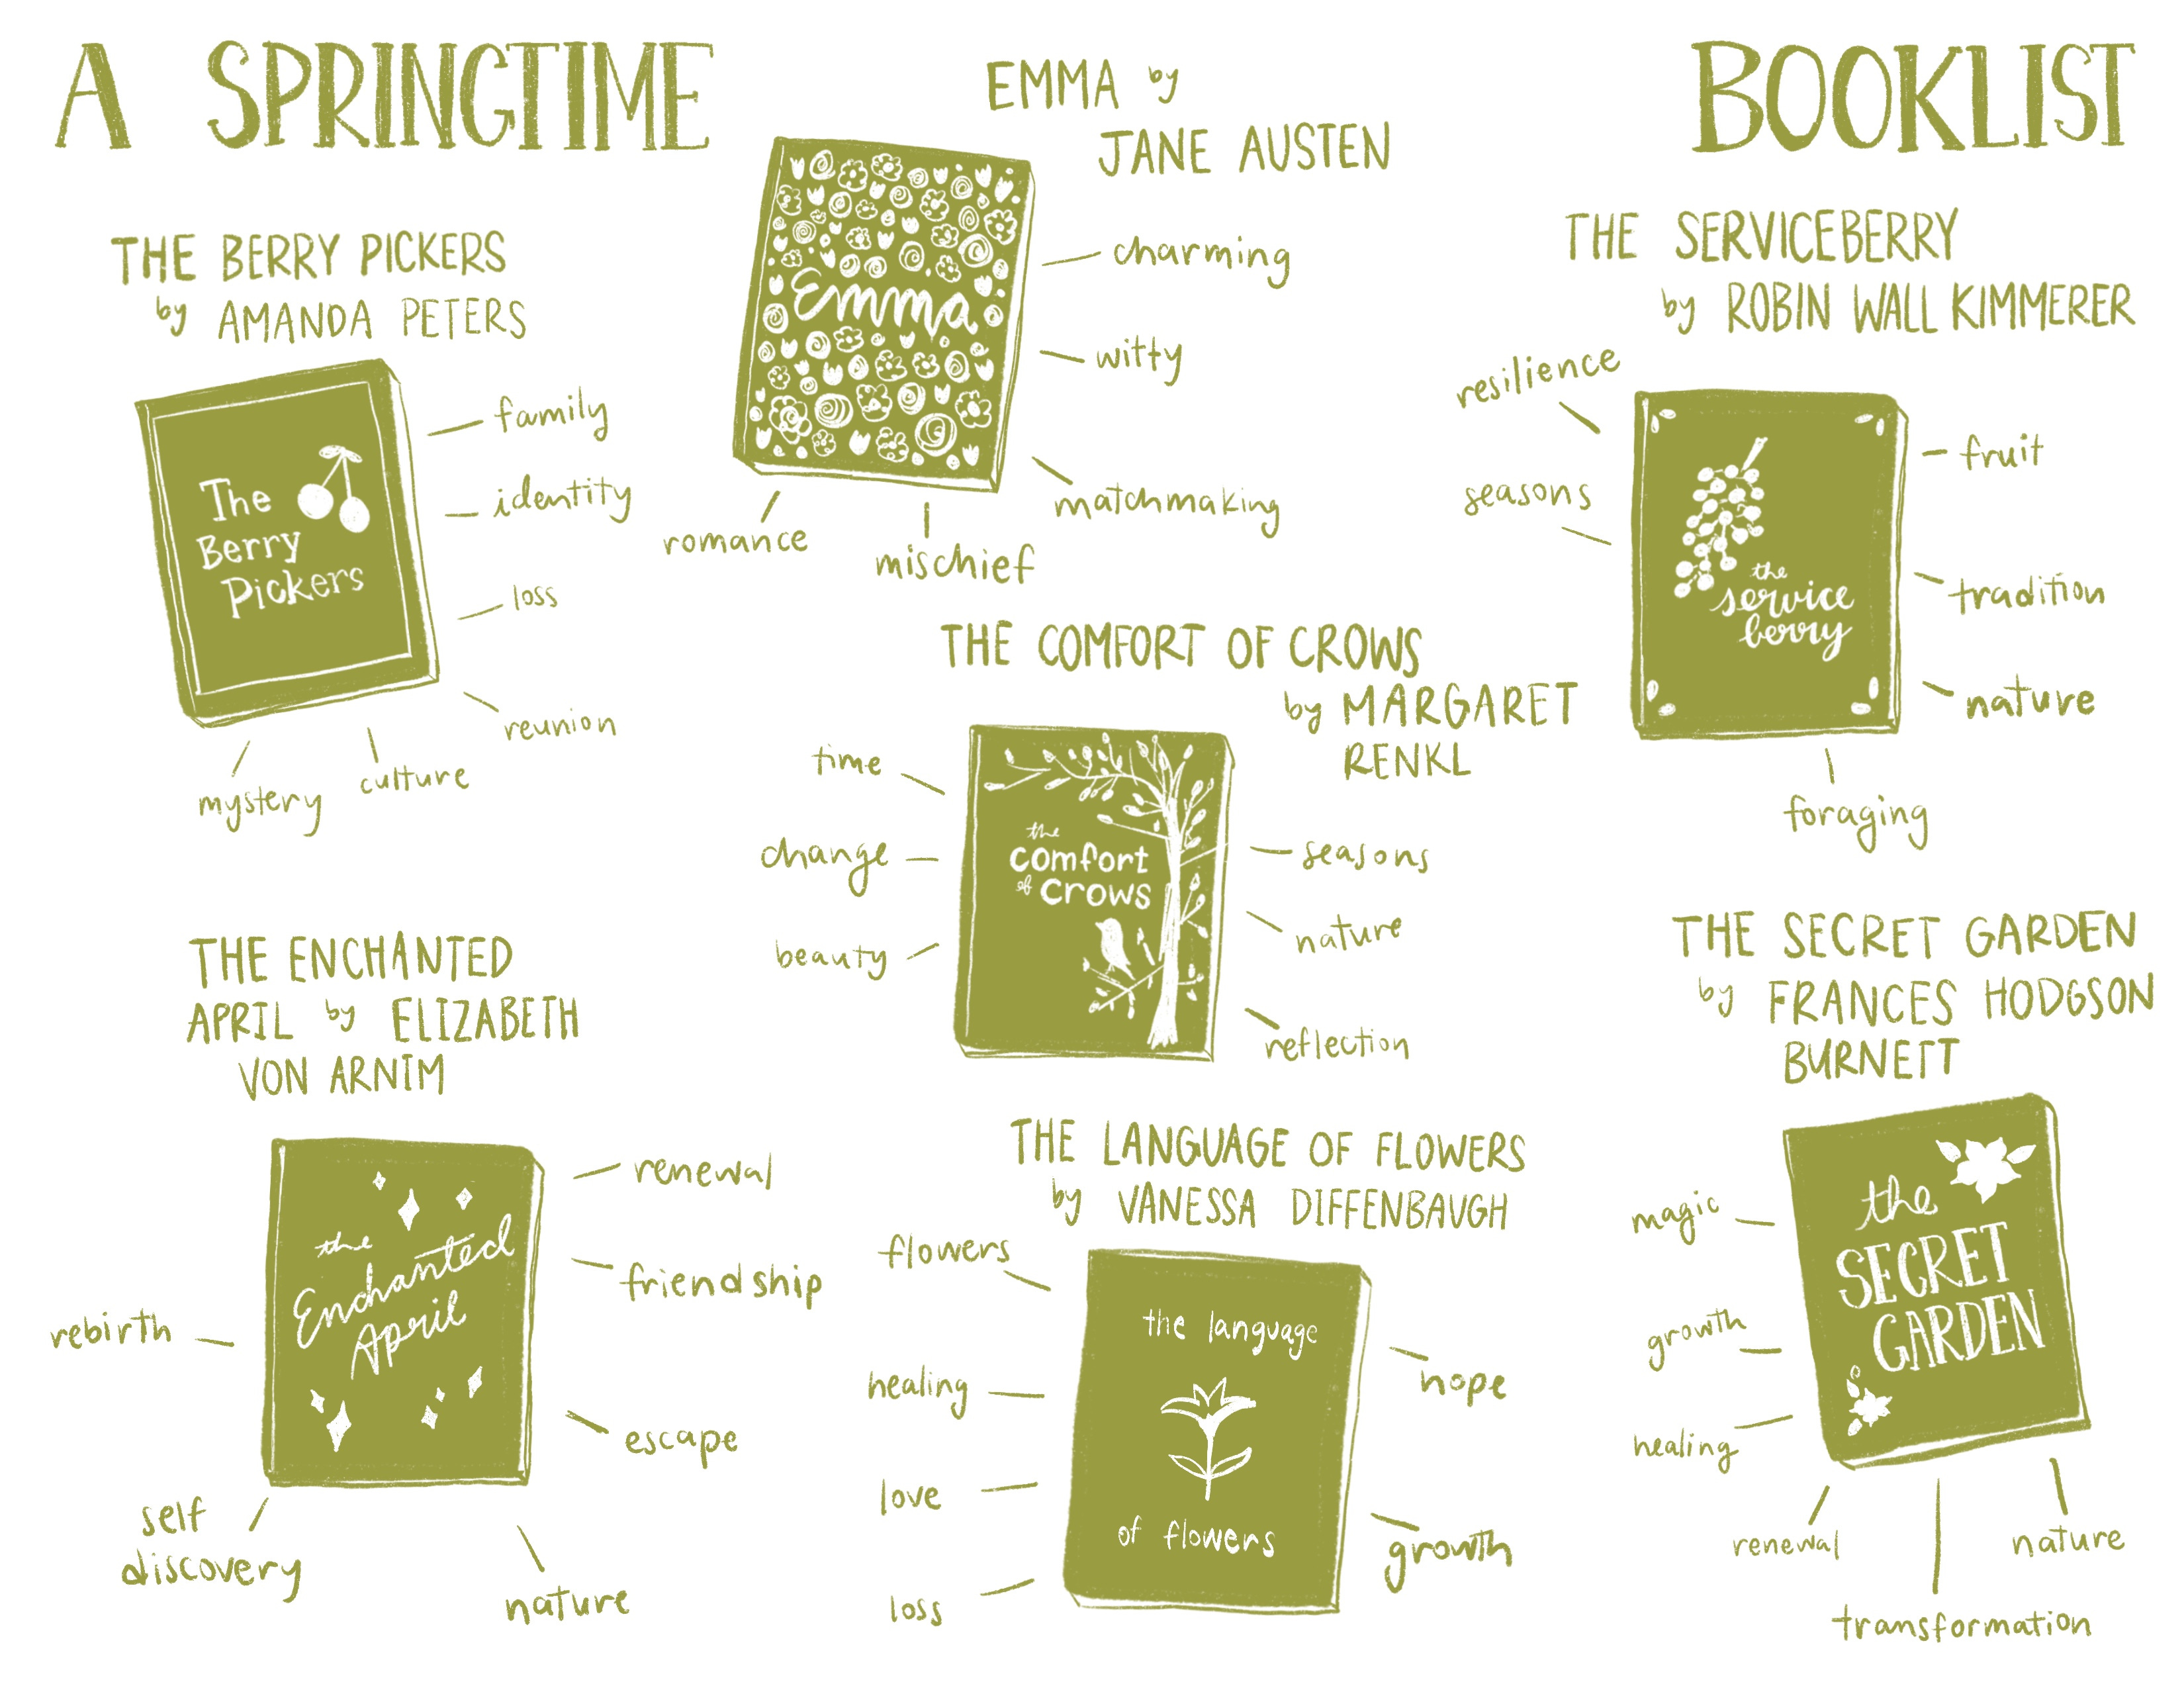 A SPRINGTIME BOOKLIST
THE BERRY PICKERS
by AMANDA PETERS
The
Berry
Pickers
family
identity
loss
reunion
culture
mystery
EMMA by
JANE AUSTEN
Emma
charming
witty
matchmaking
mischief
romance
THE SERVICEBERRY
by ROBIN WALL KIMMERER
resilience
seasons
the
service
berry
fruit
tradition
nature
foraging
THE COMFORT OF CROWS
by MARGARET
RENKL
time
change
beauty
the
comfort
of crows
seasons
nature
reflection
THE ENCHANTED
APRIL by ELIZABETH
VON ARNIM
the
Enchanted
April
renewal
friendship
escape
nature
self
discovery
rebirth
THE LANGUAGE OF FLOWERS
by VANESSA DIFFENBAUGH
flowers
healing
love
loss
the language
of flowers
hope
growth
THE SECRET GARDEN
by FRANCES HODGSON
BURNETT
the
SECRET
GARDEN
magic
growth
healing
renewal
transformation
nature